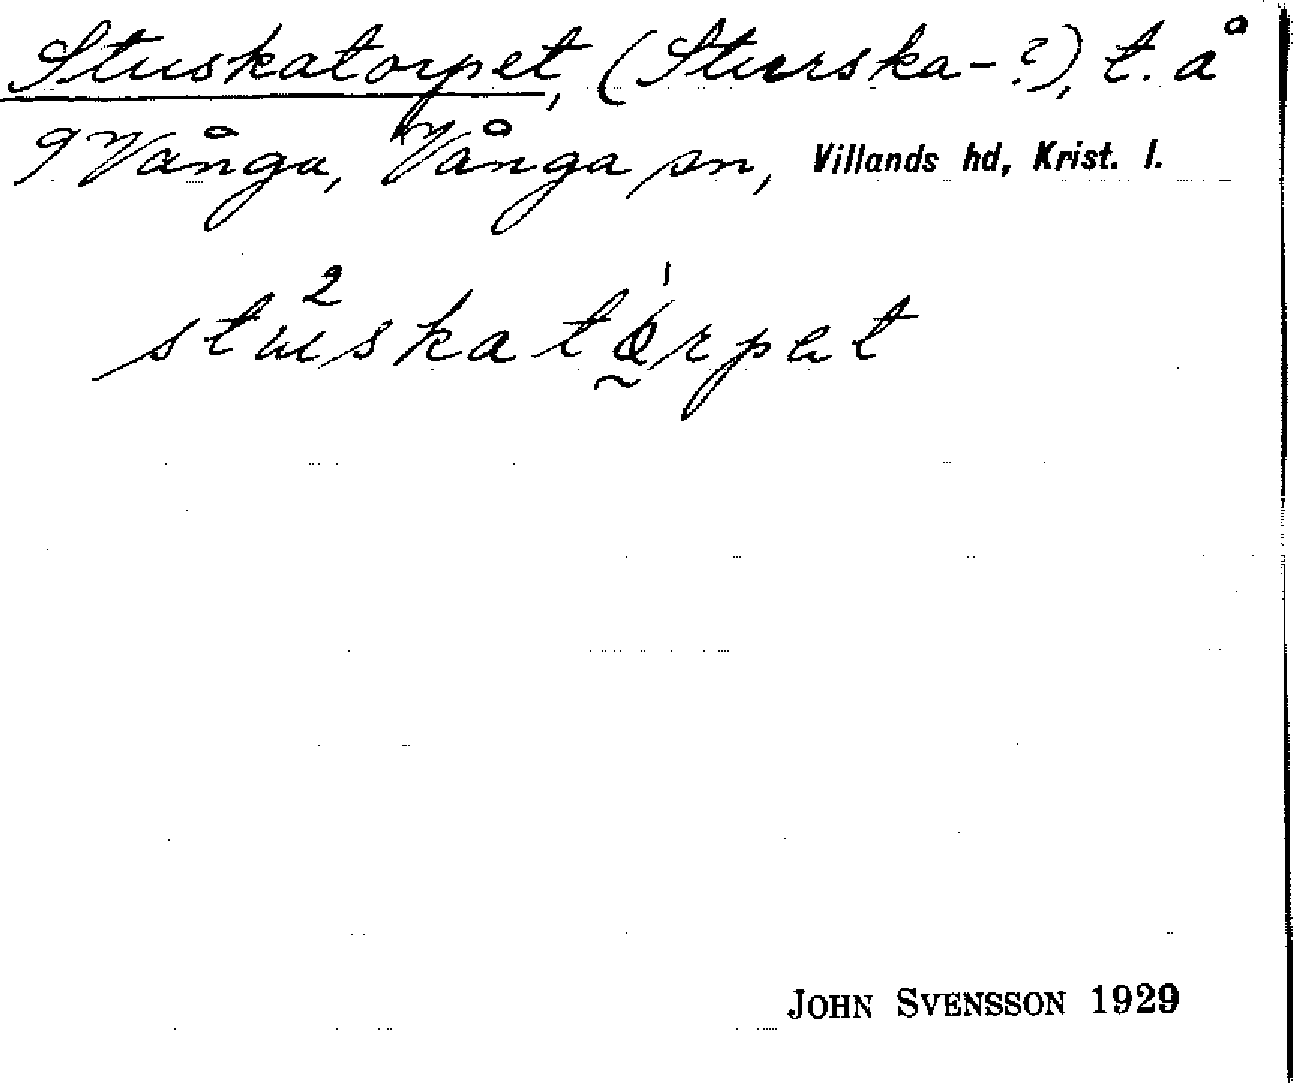 Stuskatorpet, (Sturska-?), t. å
9 Vånga, Vånga sn, Villands hd, Krist. l.
stuskatǫrpet
JOHN SVENSSON 1929